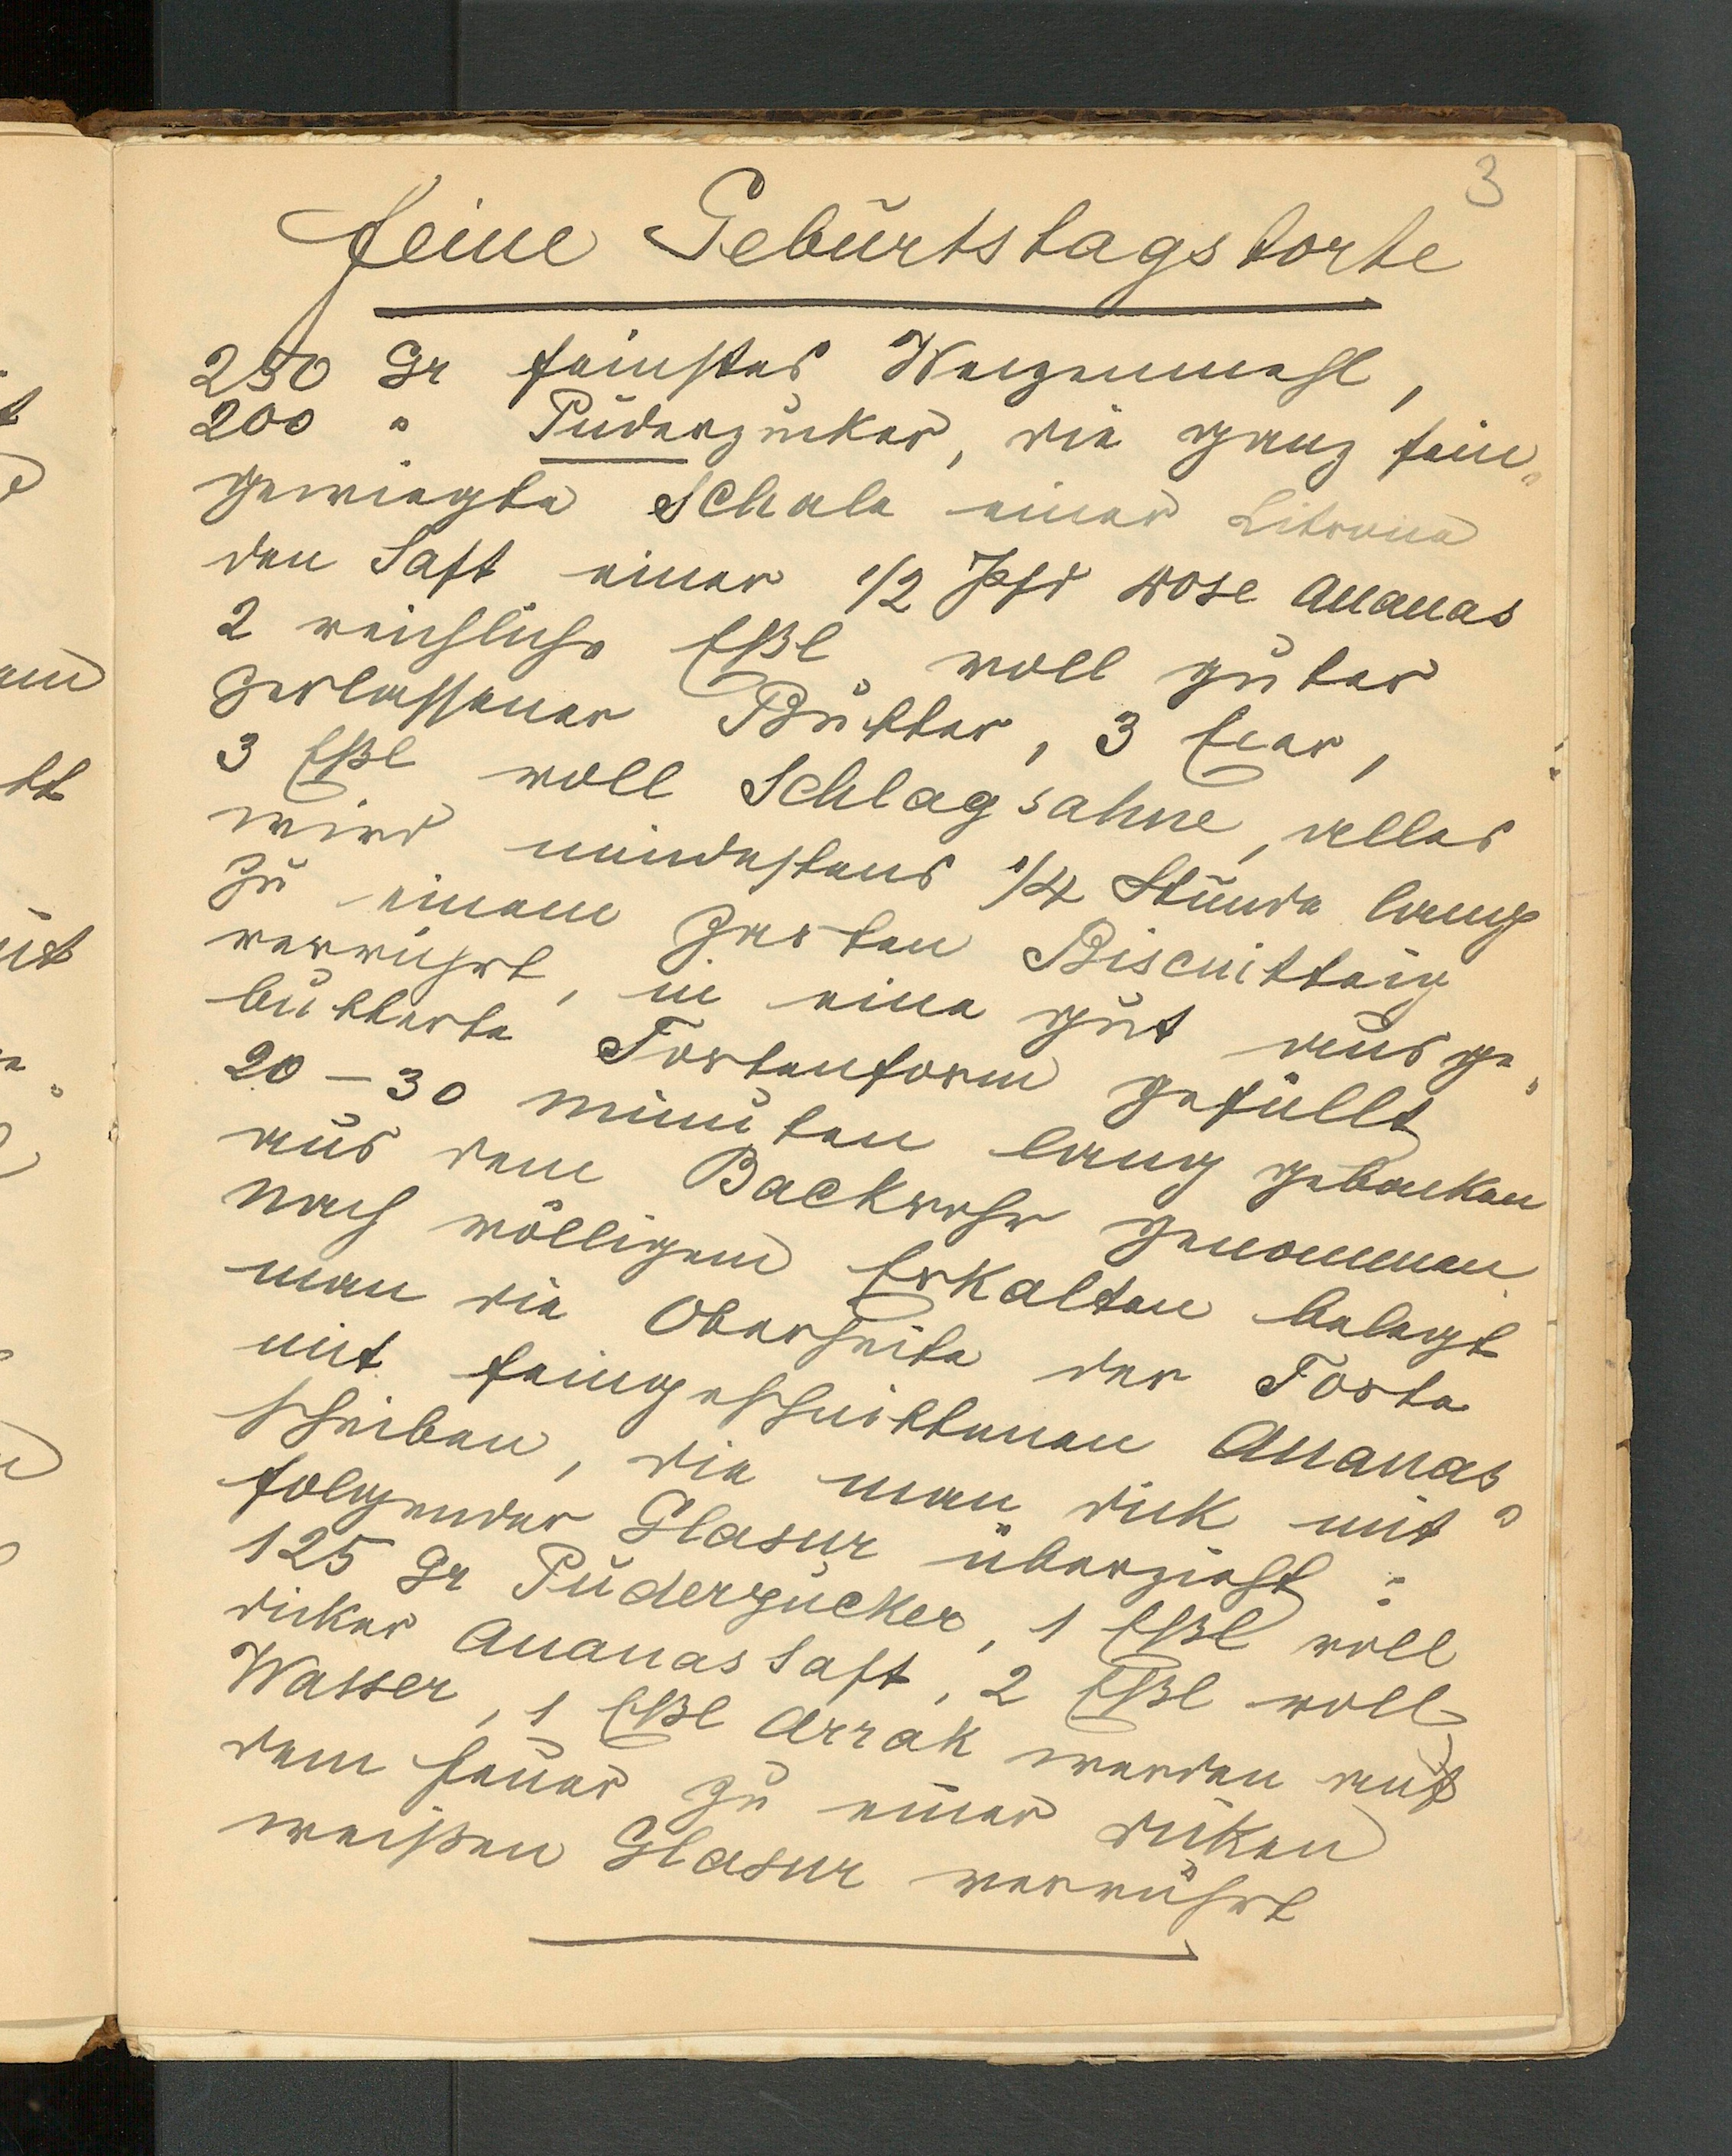 3
feine Geburtstagstorte
250 Gr feinstes Weizenmehl,
200 " Puderzucker, die ganz fein„
gewiegte Schale einer Citrone
den Saft einer 1/2 Pfd Dose Ananas
2 reichliche Eßl. voll guter
zerlassener Butter, 3 Eier,
3 Eßl voll Schlagsahne, alles
wird mindestens 1/4 Stunde lang
zu einem zarten Biscuitteig
verrührt, in eine gut ausge„
butterte Tortenform gefüllt
20 – 30 Minuten lang gebacken
aus dem Backrohr genommen.
Nach völligem Erkalten belegt
man die Oberseite der Torte
mit feingeschnittenen Ananas„
scheiben, die man dick mit
folgender Glasur überzieht:
125 Gr Puderzucker, 1 Eßl voll
dicker Ananassaft, 2 Eßl voll
Wasser, 1 Eßl Arrak werden auf
dem Feuer zu einer dicken
weißen Glasur verrührt